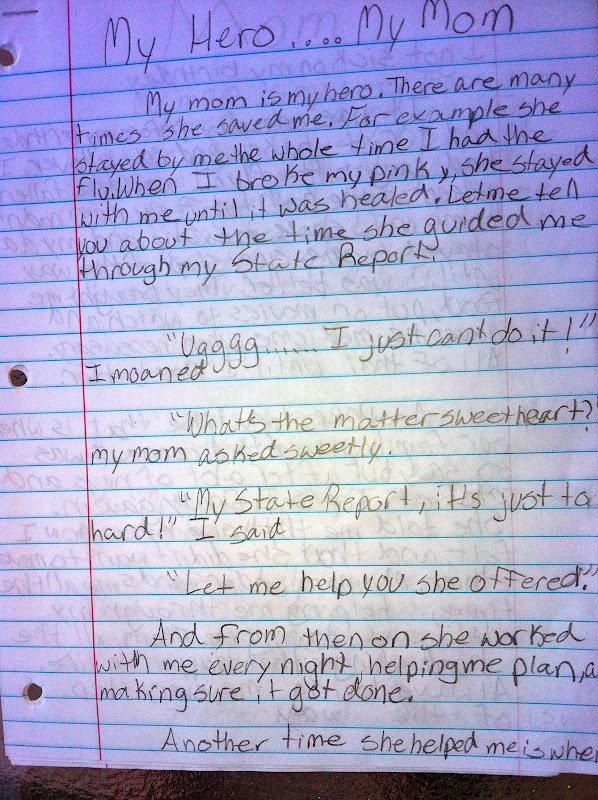 My Hero .... My Mom
My mom is my hero. There are many
times she saved me. For example she
stayed by me the whole time I had the
fly. When I broke my pinky, she stayed
with me until it was healed. Let me tell
you about the time she guided me
through my State Report.
"Ugggg...... I just cant do it!"
I moaned
"What's the matter sweetheart?"
my mom asked sweetly.
"My State Report, it's just to
hard!" I said
"Let me help you she offered."
And from then on she worked
with me every night, helping me plan, a
making sure it got done.
Another time she helped me is when